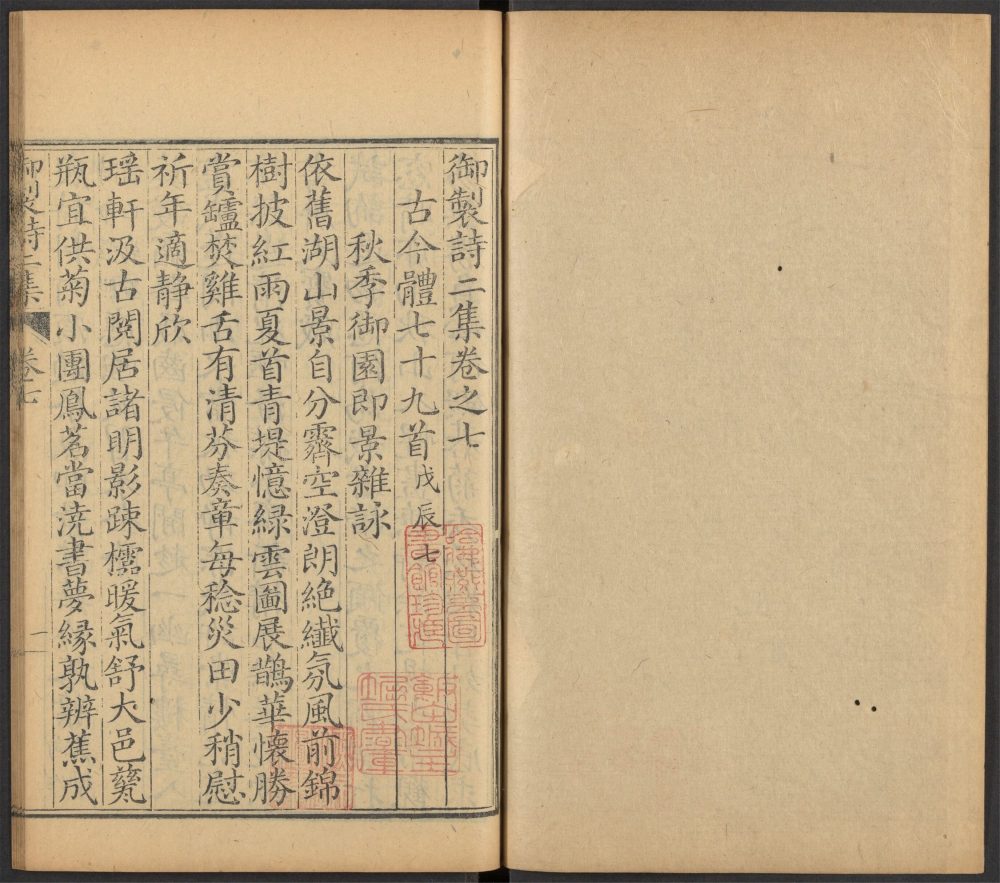 御製詩二集卷之七
古今體七十九首戊辰七
秋季御園即景雜詠
依舊湖山景自分霽空澄朗絶纖氛風前錦
樹披紅雨夏首青堤憶緑雲圖展鵲華懷勝
賞鑪焚雞舌有清芬奏章每稔災田少稍慰
祈年適静欣
瑶軒汲古閱居諸明影踈櫺暖氣舒大邑甆
瓶宜供菊小團鳳茗當澆書夢緣孰辨蕉成
御製詩二集 卷七 一
哈佛燕京圖書館珍藏